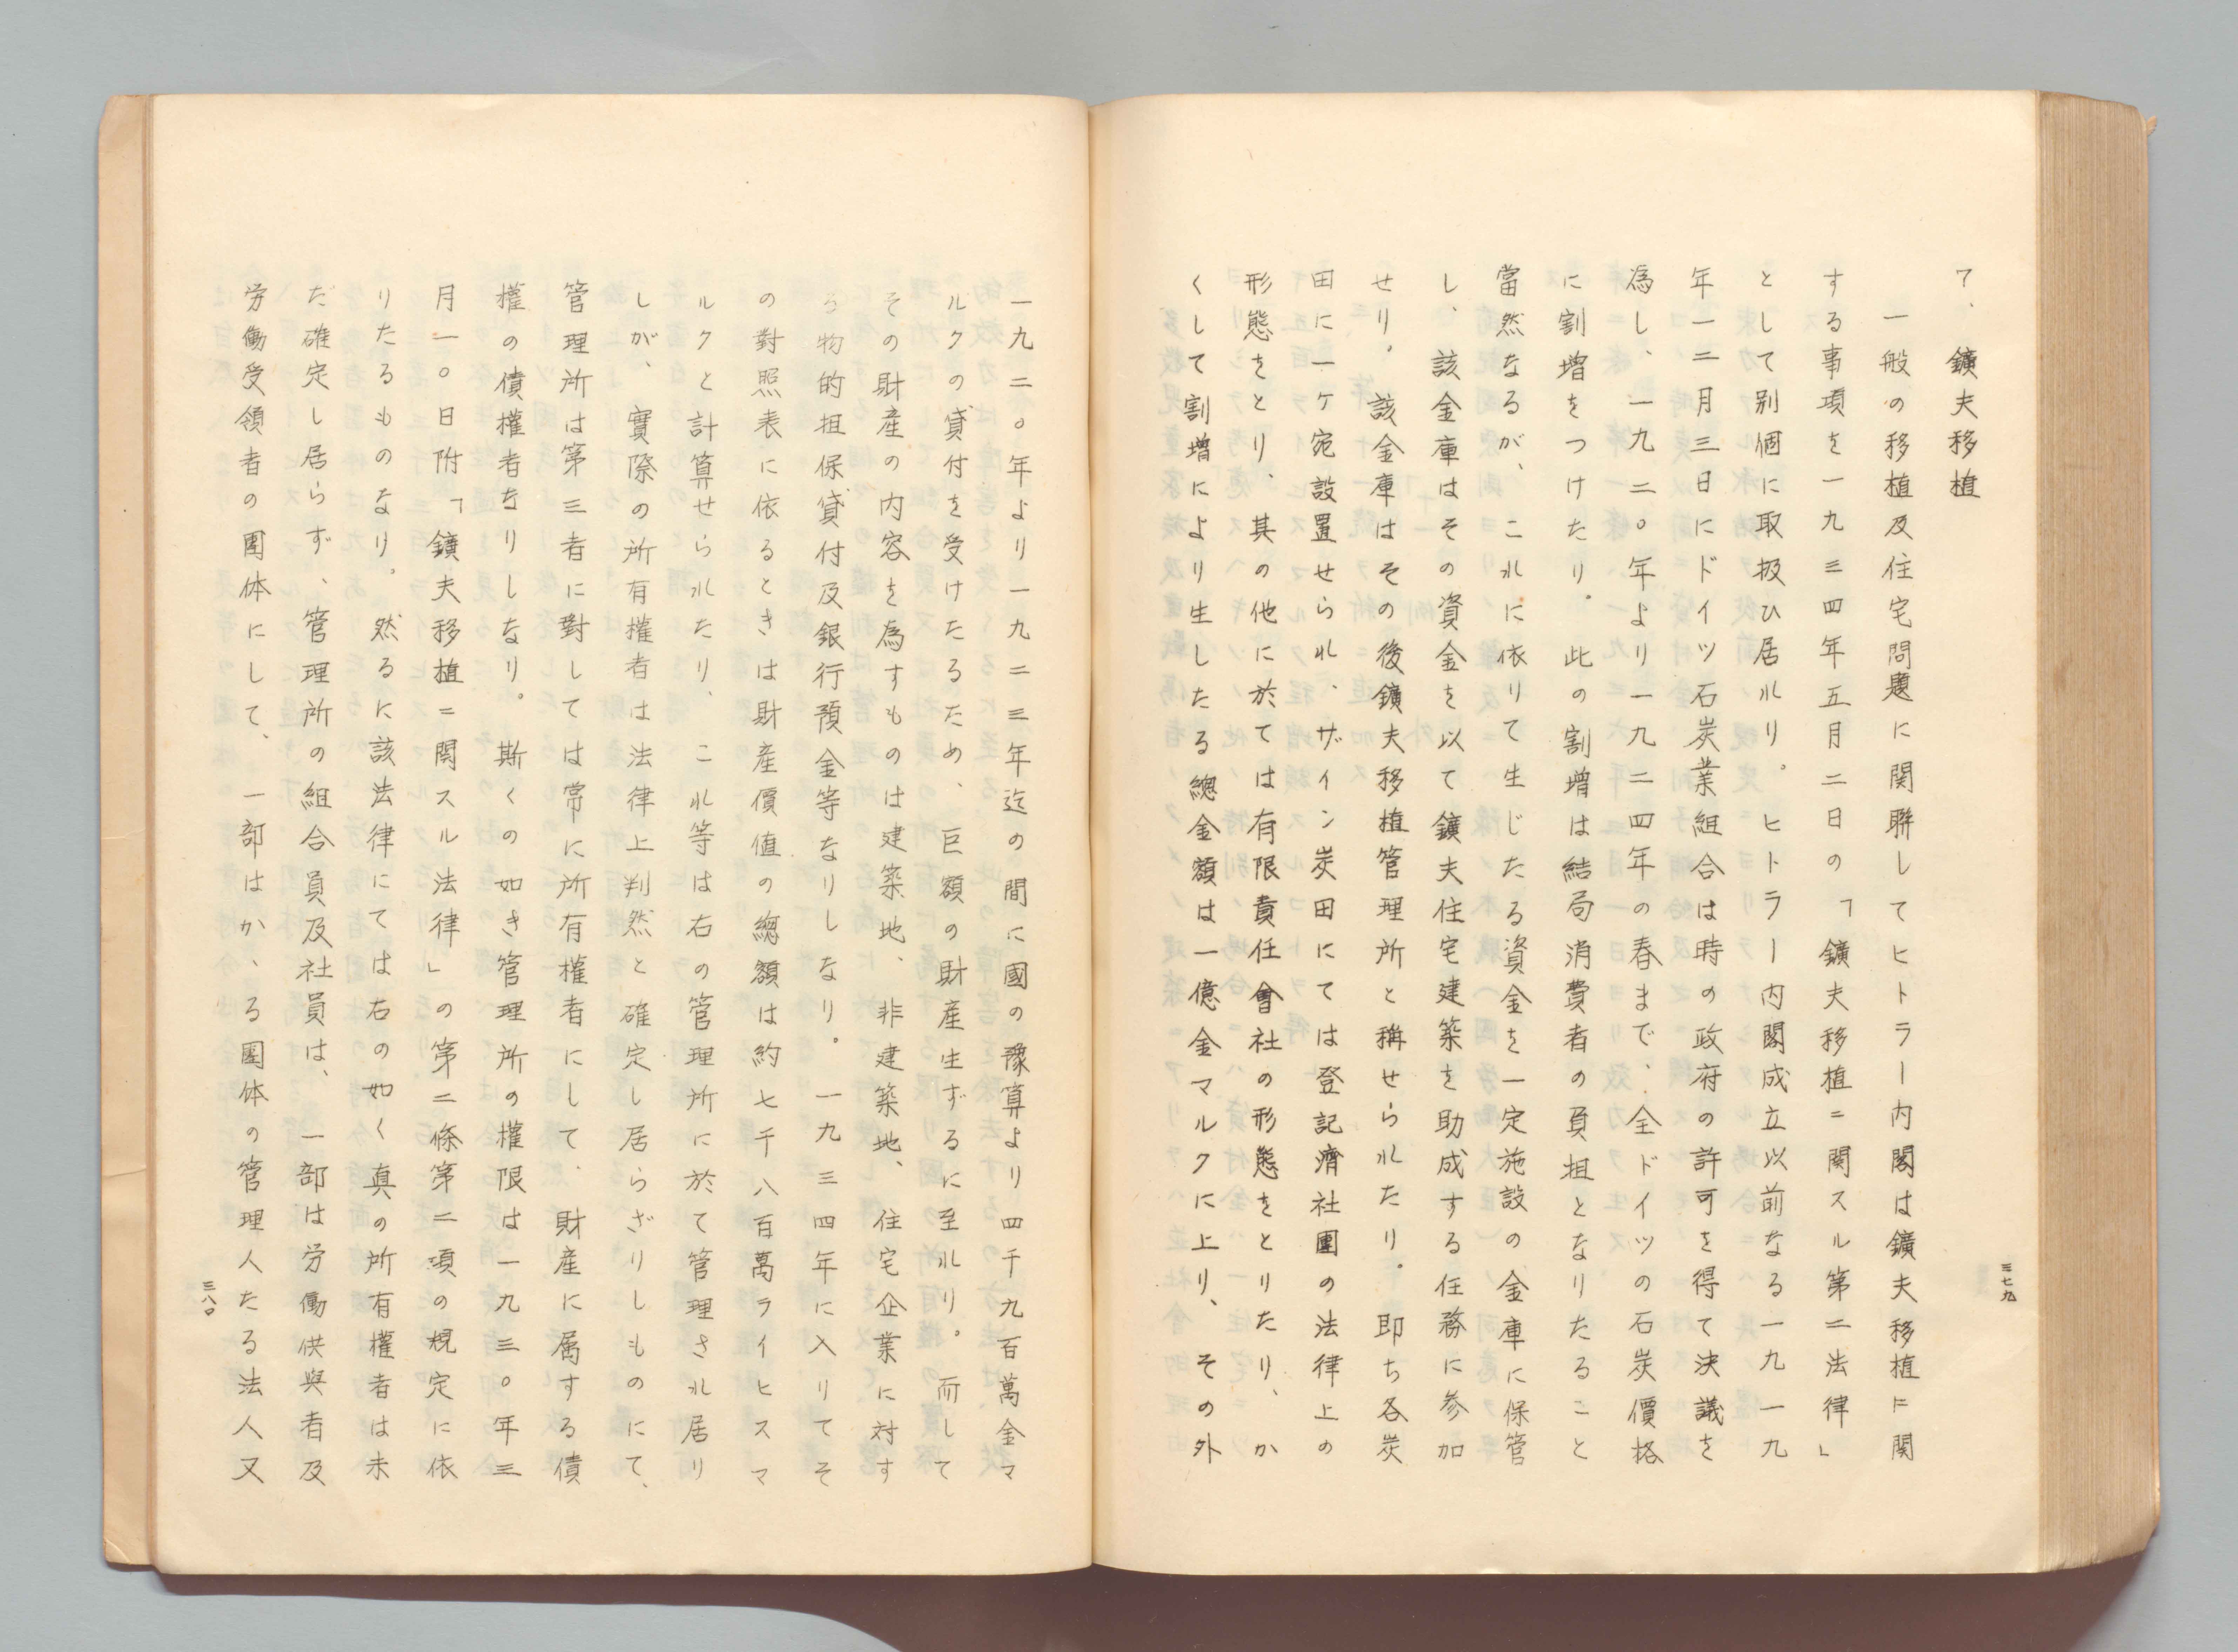 7、鑛夫移植
一般の移植及住宅問題に関聯してヒトラー内閣は鑛夫移植に関
する事項を一九三四年五月二日の「鑛夫移植ニ関スル第二法律」
として別個に取扱ひ居れり。ヒトラー内閣成立以前なる一九一九
年一二月三日にドイツ石炭業組合は時の政府の許可を得て決議を
為し、一九二〇年より一九二四年の春まで、全ドイツの石炭價格
に割増をつけたり。此の割増は結局消費者の負担となりたること
當然なるが、これに依りて生じたる資金を一定施設の金庫に保管
し、該金庫はその資金を以て鑛夫住宅建築を助成する任務に参加
せり。該金庫はその後鑛夫移植管理所と稱せられたり。即ち各炭
田に一ケ宛設置せられ、ザイン炭田にては登記濟社團の法律上の
形態をとり、其の他に於ては有限責任會社の形態をとりたり、か
くして割増により生したる總金額は一億金マルクに上り、その外
三七九
一九二〇年より一九二三年迄の間に國の豫算より四千九百萬金マ
ルクの貸付を受けたるため、巨額の財産生ずるに至れり。而して
その財産の内容を為すものは建築地、非建築地、住宅企業に対す
る物的担保貸付及銀行預金等なりしなり。一九三四年に入りてそ
の對照表に依るときは財産價値の總額は約七千八百萬ライヒスマ
ルクと計算せられたり、これ等は右の管理所に於て管理され居り
しが、實際の所有權者は法律上判然と確定し居らざりしものにて、
管理所は第三者に對しては常に所有權者にして、財産に属する債
權の債權者なりしなり。斯くの如き管理所の權限は一九三〇年三
月一〇日附「鑛夫移植ニ関スル法律」の第二條第二項の規定に依
りたるものなり。然るに該法律にては右の如く真の所有權者は未
だ確定し居らず、管理所の組合員及社員は、一部は労働供與者及
労働受領者の團体にして、一部はかゝる團体の管理人たる法人又
三八〇